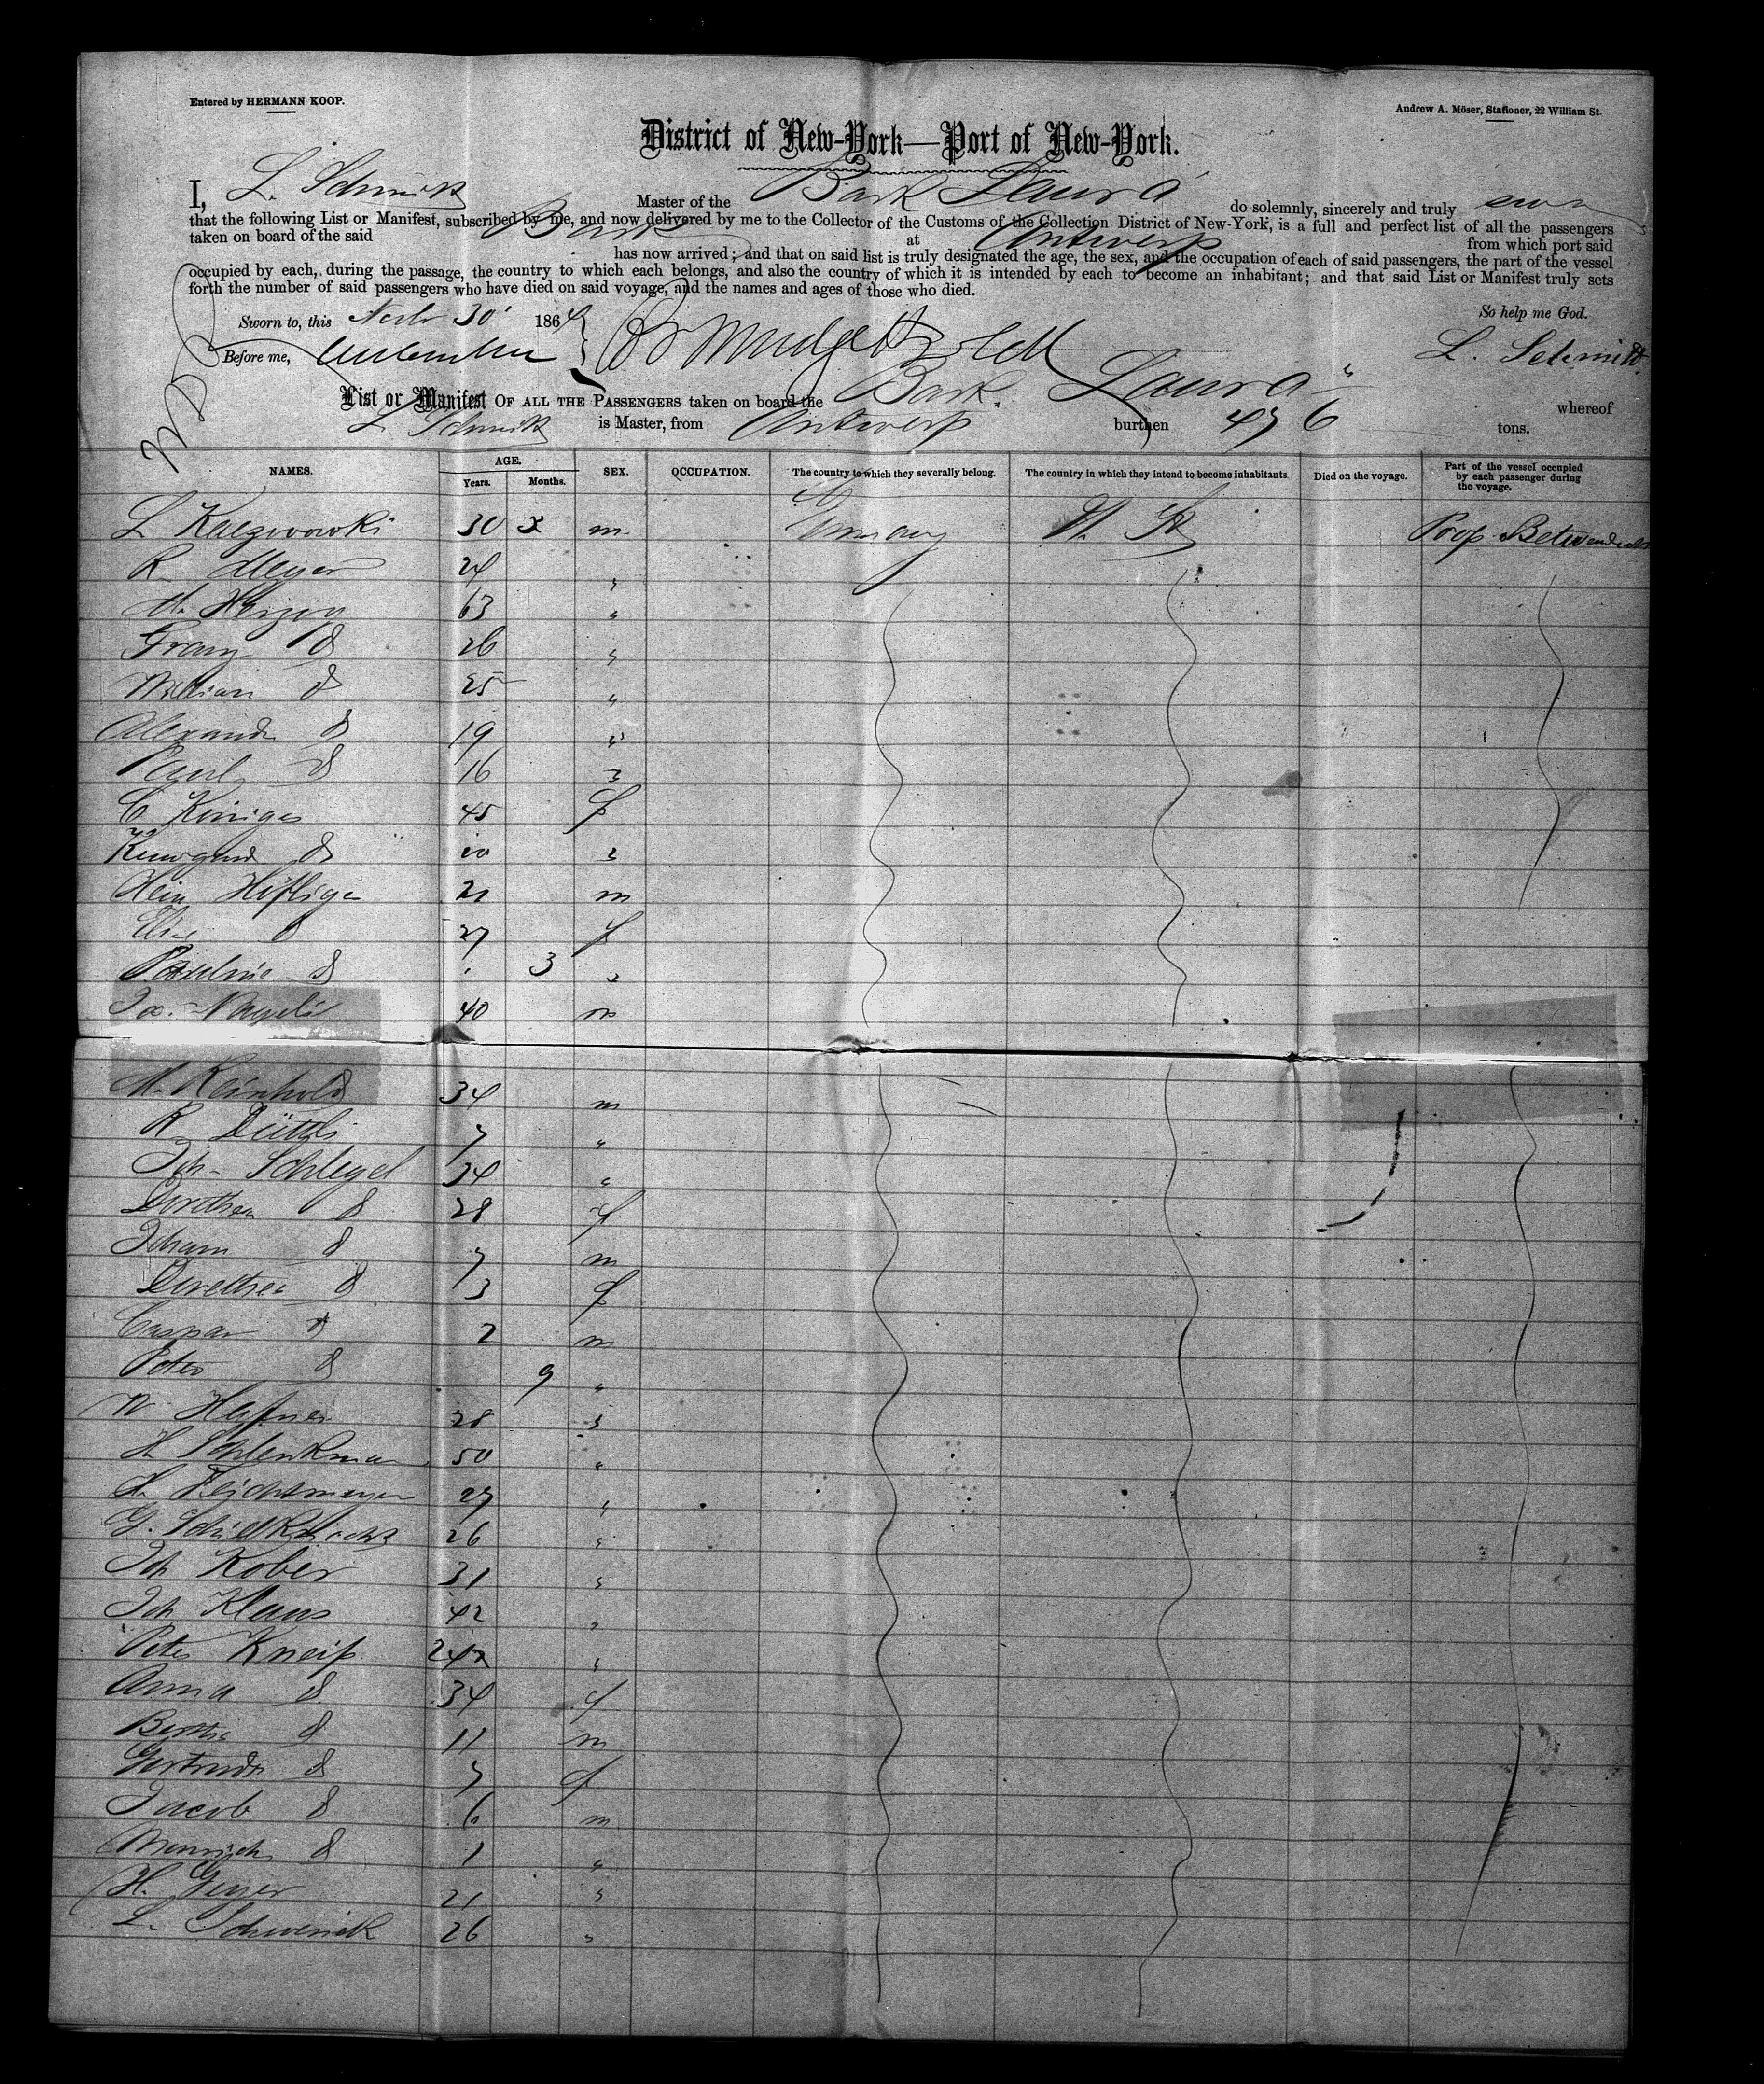 Entered by HERMANN KOOP.
Andrew A. Möser, Stationer, 22 William St.
District of New-York—Port of New-York.
I, L. Schmidt Master of the Bark Laura do solemnly, sincerely and truly swear
that the following List or Manifest, subscribed by me, and now delivered by me to the Collector of the Customs of the Collection District of New-York, is a full and perfect list of all the passengers
taken on board of the said Bark at Antwerp from which port said
has now arrived; and that on said list is truly designated the age, the sex, and the occupation of each of said passengers, the part of the vessel
occupied by each, during the passage, the country to which each belongs, and also the country of which it is intended by each to become an inhabitant; and that said List or Manifest truly sets
forth the number of said passengers who have died on said voyage, and the names and ages of those who died.
So help me God.
Sworn to, this 30 1864
L. Schmidt
Before me,
List or Manifest OF ALL THE PASSENGERS taken on board the Bark Laura whereof
L Schmidt is Master, from Antwerp burthen 476 tons.
NAMES. AGE. Years. Months. SEX. OCCUPATION. The country to which they severally belong. The country in which they intend to become inhabitants. Died on the voyage. Part of the vessel occupied by each passenger during the voyage.
L 30 m Germany U. St Poop
R. Meyer 24 "
A. Herzog 63 "
Franz d 26 "
William d 25 "
Alexander d 19 "
Paul d 16 "
C Koniger 45 f
d "
Hein Hifliger 21 m
Elise d 27 f
Pauline d 3 "
Jos. Nageli 40 m
M. Reinhold 34 m
R Düttli 7 "
Joh. Schlegel 34 "
Dorothea d 28 f
Joham d 7 m
Dorothea d 3 f
Caspar d 2 m
Peter d 9 "
W Hafner 28 "
H Schlenkman 50 "
A. Feichtmeyer 27 "
G. 26 "
Joh Kober 31 "
Joh Klaus 42 "
Peter Kneip 42 "
Anna d 34 f
d 11 m
Gertrude d 7 f
Jacob d 6 m
Heinrich d 1 "
H. Geiser 21 "
L. Schwenk 26 "